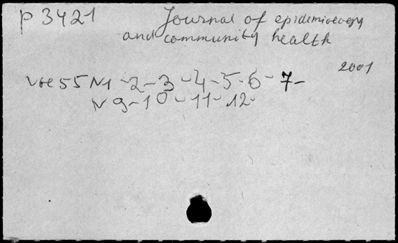 P 3421 Journal of epidemiology
and community health
2001
Vol 55 N1 - 2 - 3 - 4 - 5 - 6 - 7 -
N 9 - 10 - 11 - 12 -